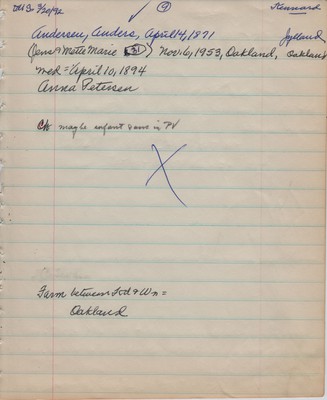 9
Kennard
Andersen, Anders, April 14, 1871 Jylland
(Jens & Mette Marie 31) Nov. 6, 1953, Oakland, Oakland
med = April 10, 1894
Anna Petersen
maybe infant gave in PV
Farm between Fod & Wn =
Oakland